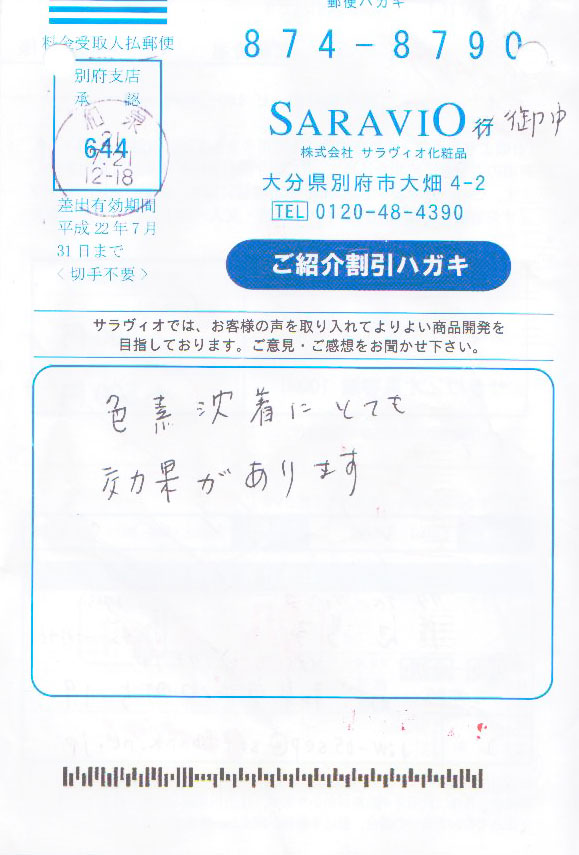 郵便ハガキ
料金受取人払郵便
874-8790
別府支店
承認
644
21
7.21
12-18
差出有効期間
平成22年7月
31日まで
〈切手不要〉
SARAVIO行 御中
株式会社 サラヴィオ化粧品
大分県別府市大畑4-2
TEL 0120-48-4390
ご紹介割引ハガキ
サラヴィオでは、お客様の声を取り入れてよりよい商品開発を
目指しております。ご意見・ご感想をお聞かせ下さい。
色素沈着にとても
効果があります